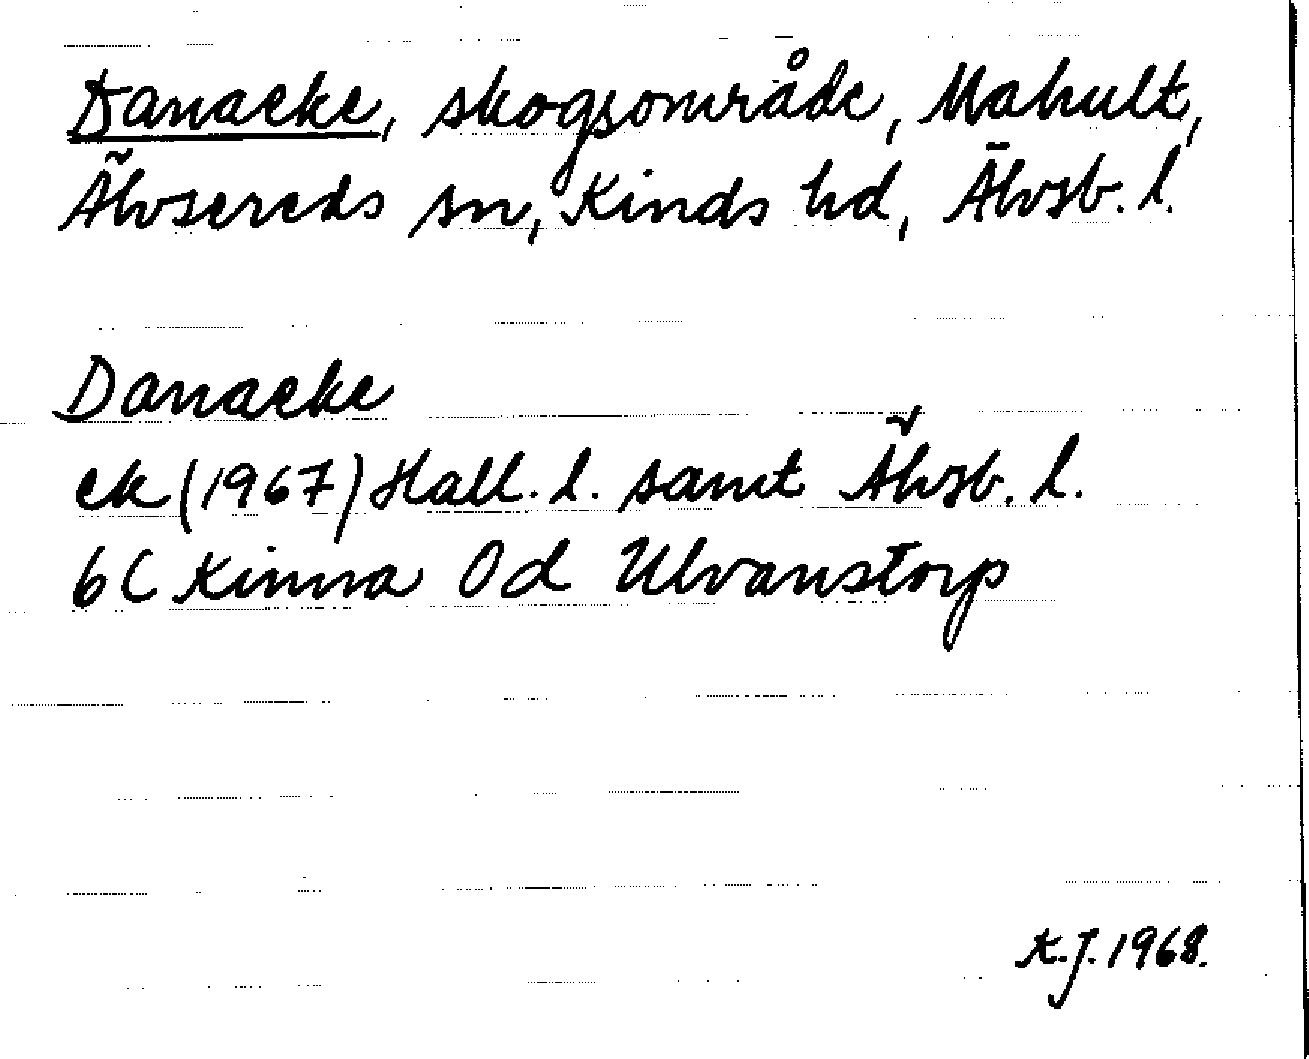 Danaeke, skogsområde, Mahult,
Älvsereds sn, Kinds hd, Älvsb. l.
Danaeke
ek (1967) Hall. l. samt Älvsb. l.
6C Kinna 0d Ulvanstorp
K.J. 1968.